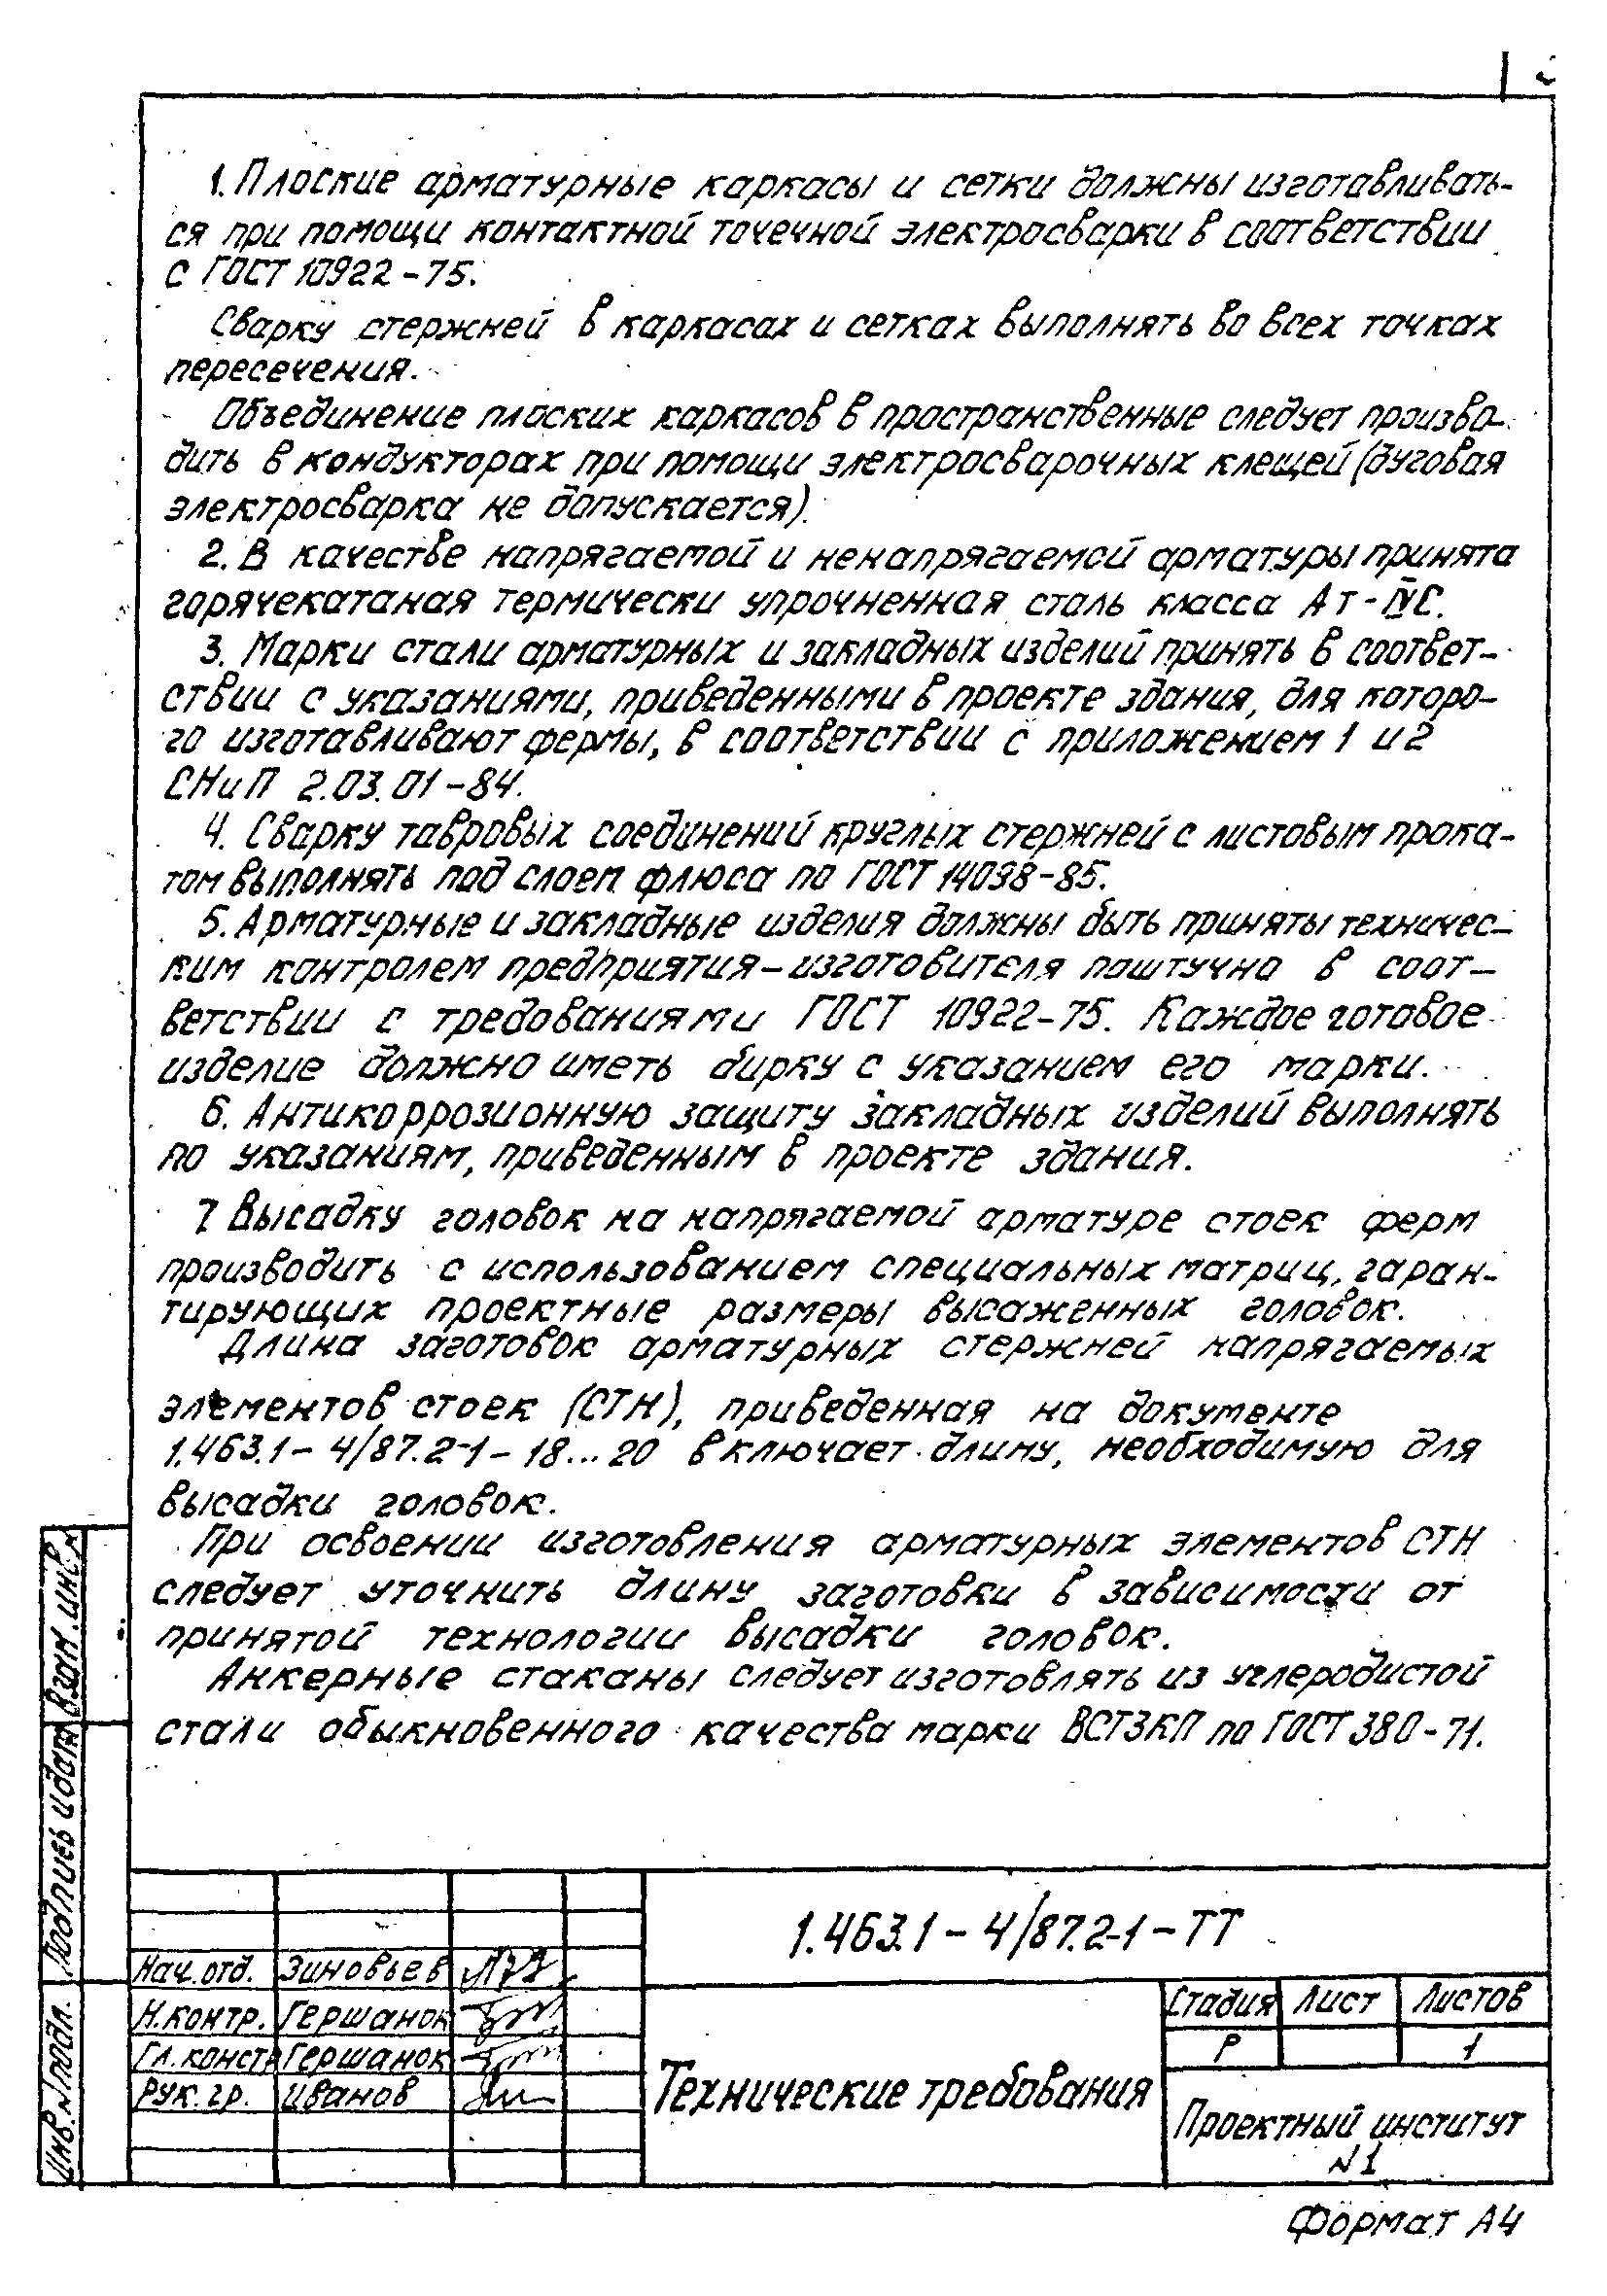 1. Плоские арматурные каркасы и сетки должны изготавливать-
ся при помощи контактной точечной электросварки в соответствии
с ГОСТ 10922-75.
Сварку стержней в каркасах и сетках выполнять во всех точках
пересечения.
Объединение плоских каркасов в пространственные следует произво-
дить в кондукторах при помощи электросварочных клещей (дуговая
электросварка не допускается).
2. В качестве напрягаемой и ненапрягаемой арматуры принята
горячекатаная термически упрочненная сталь класса Ат-IVС.
3. Марки стали арматурных и закладных изделий принять в соответ-
ствии с указаниями, приведенными в проекте здания, для которо-
го изготавливают фермы, в соответствии с приложением 1 и 2
СНиП 2.03.01-84.
4. Сварку тавровых соединений круглых стержней с листовым прока-
том выполнять под слоем флюса по ГОСТ 14098-85.
5. Арматурные и закладные изделия должны быть приняты техничес-
ким контролем предприятия-изготовителя поштучно в соот-
ветствии с требованиями ГОСТ 10922-75. Каждое готовое
изделие должно иметь бирку с указанием его марки.
6. Антикоррозионную защиту закладных изделий выполнять
по указаниям, приведенным в проекте здания.
7 Высадку головок на напрягаемой арматуре стоек ферм
производить с использованием специальных матриц, гаран-
тирующих проектные размеры высаженных головок.
Длина заготовок арматурных стержней напрягаемых
элементов стоек (СТН), приведенная на документе
1.463.1-4/87.2-1-18...20 включает длину, необходимую для
высадки головок.
При освоении изготовления арматурных элементов СТН
следует уточнить длину заготовки в зависимости от
принятой технологии высадки головок.
Анкерные стаканы следует изготовлять из углеродистой
стали обыкновенного качества марки ВСТ3КП по ГОСТ 380-71.
Взам. инв. №
Подпись и дата
Инв. № подл.
1.463.1-4/87.2-1-ТТ
Нач. отд. Зиновьев
Н. контр. Гершанок
Гл. констр Гершанок
Рук. гр. Иванов
Технические требования
Стадия Лист Листов
Р 1
Проектный институт
№1
Формат А4